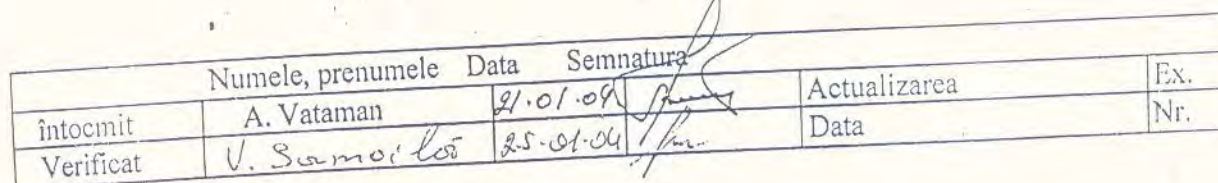 Numele, prenumele Data Semnatura
întocmit A. Vataman 21.01.04 Actualizarea Ex.
Verificat V. Samoilă 25.01.04 Data Nr.